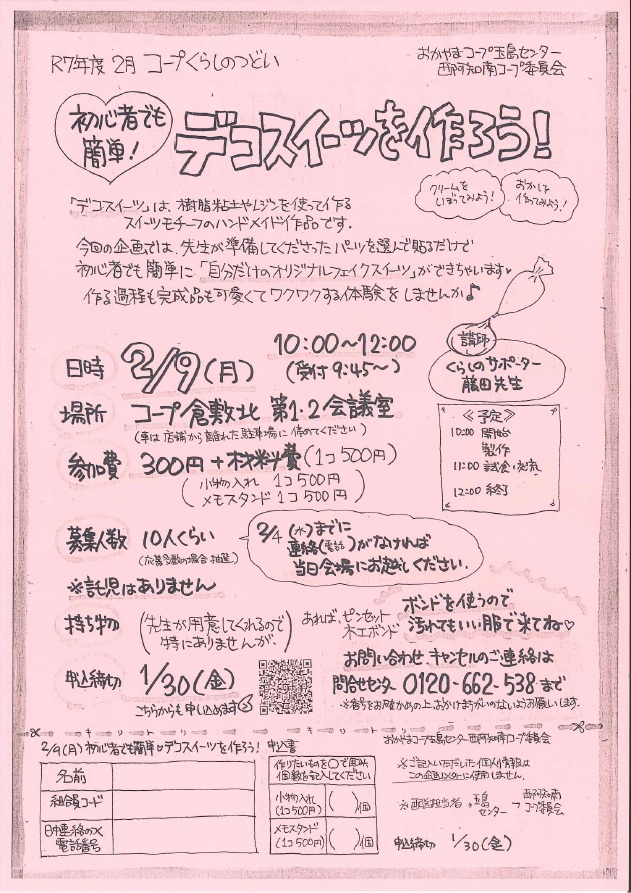 R7年度 2月 コープくらしのつどい
おかやまコープ玉島センター
西阿知南コープ委員会
初心者でも
簡単！
デコスイーツを作ろう！
クリームを
しぼってみよう！
おかしを
作ってみよう！
「デコスイーツ」は、樹脂粘土やレジンを使って作る
スイーツモチーフのハンドメイド作品です。
今回の企画では、先生が準備してくださったパーツを選んで貼るだけで
初心者でも簡単に「自分だけのオリジナルフェイクスイーツ」ができちゃいます♥
作る過程も完成品も可愛くてワクワクする体験をしませんか♪
日時 2/9(月) 10:00～12:00
(受付9:45～)
講師
くらしのサポーター
藤田先生
場所 コープ倉敷北 第1・2会議室
(車は店舗から離れた駐車場に停めてください)
参加費 300円＋材料費(1コ500円)
(小物入れ 1コ500円
メモスタンド 1コ500円)
≪予定≫
10:00 開始
製作
11:00 試食・交流
12:00 終了
募集人数 10人くらい
(応募多数の場合 抽選)
2/4(水)までに
連絡(電話)がなければ
当日会場にお越しください.
※託児はありません
持ち物 (先生が用意してくれるので
特にありませんが、)
あれば、ピンセット
木工ボンド
ボンドを使うので
汚れてもいい服で来てね♡
申込締切 1/30(金)
こちらからも申し込めます
お問い合わせ、キャンセルのご連絡は
問合せセンター 0120-662-538まで
※番号をお確かめの上、おかけまちがいのないようお願いします.
2/9(月) 初心者でも簡単♡デコスイーツを作ろう！ 申込書
おかやまコープ玉島センター西阿知南コープ委員会
名前
組合員コード
日中連絡のつく
電話番号
作りたいものを○で囲み
個数を記入してください
小物入れ
(1コ500円)
( )個
メモスタンド
(1コ500円)
( )個
※ご記入いただいた個人情報は
この企画以外に使用しません.
※配送担当者→玉島センター→西阿知南コープ委員会
申込締切 1/30(金)